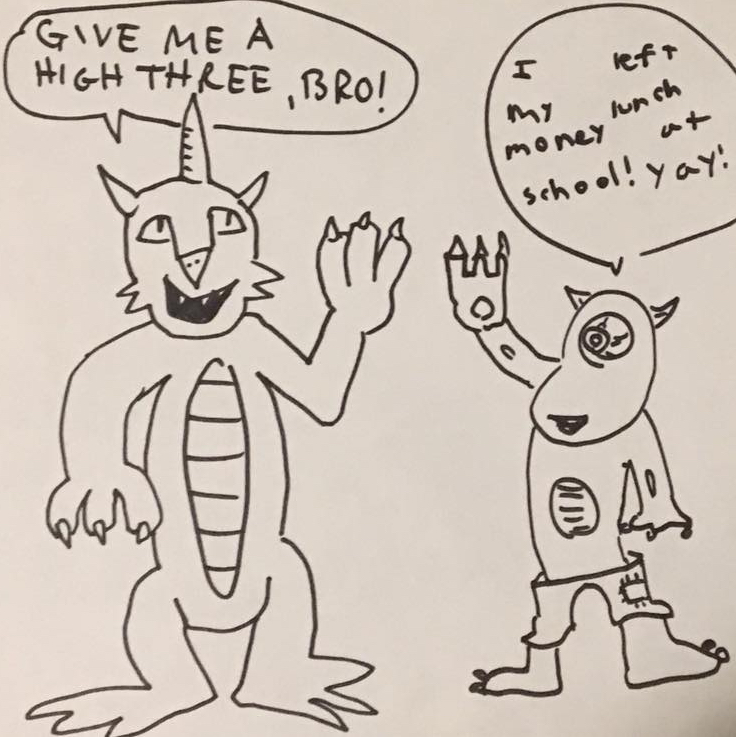 GIVE ME A
HIGH THREE, BRO!
I left
my lunch
money at
school! yay!